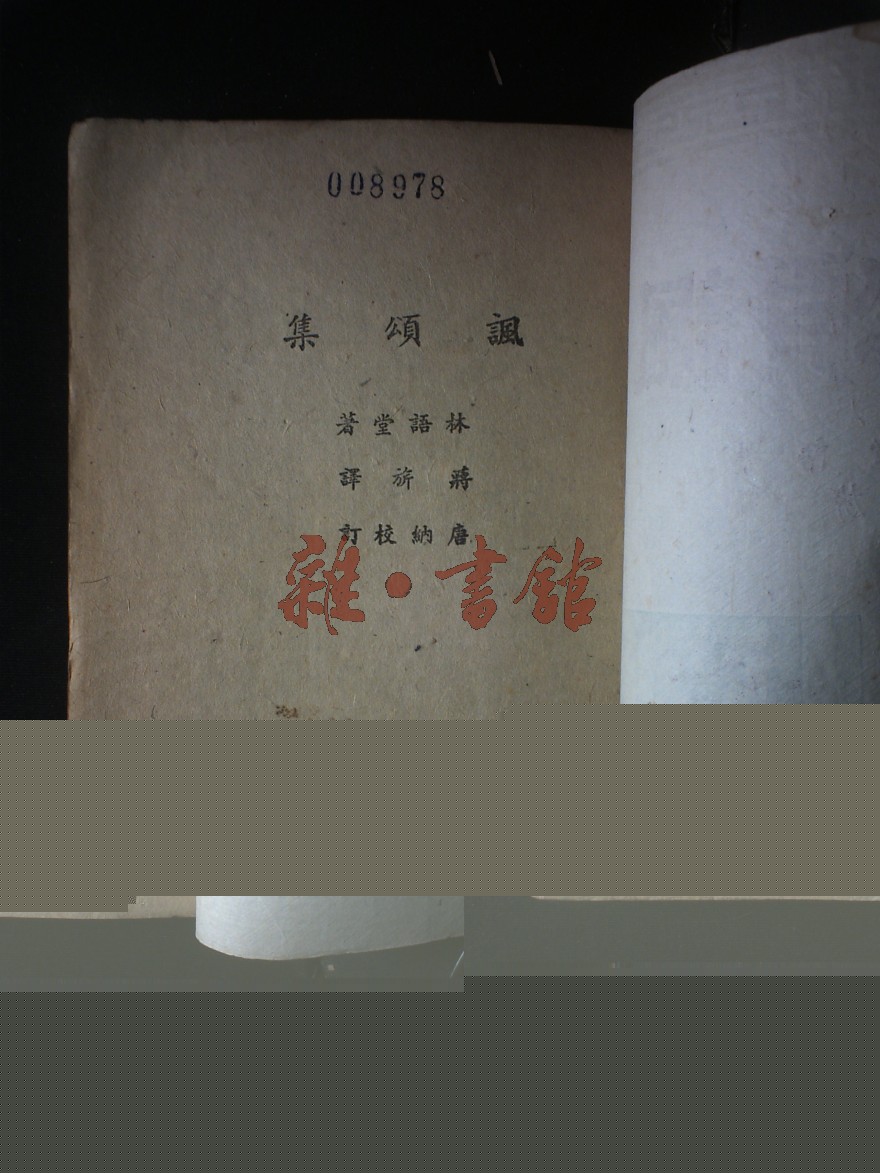 008978
諷頌集
林語堂著
蔣旂譯
唐納校訂
雜·書館